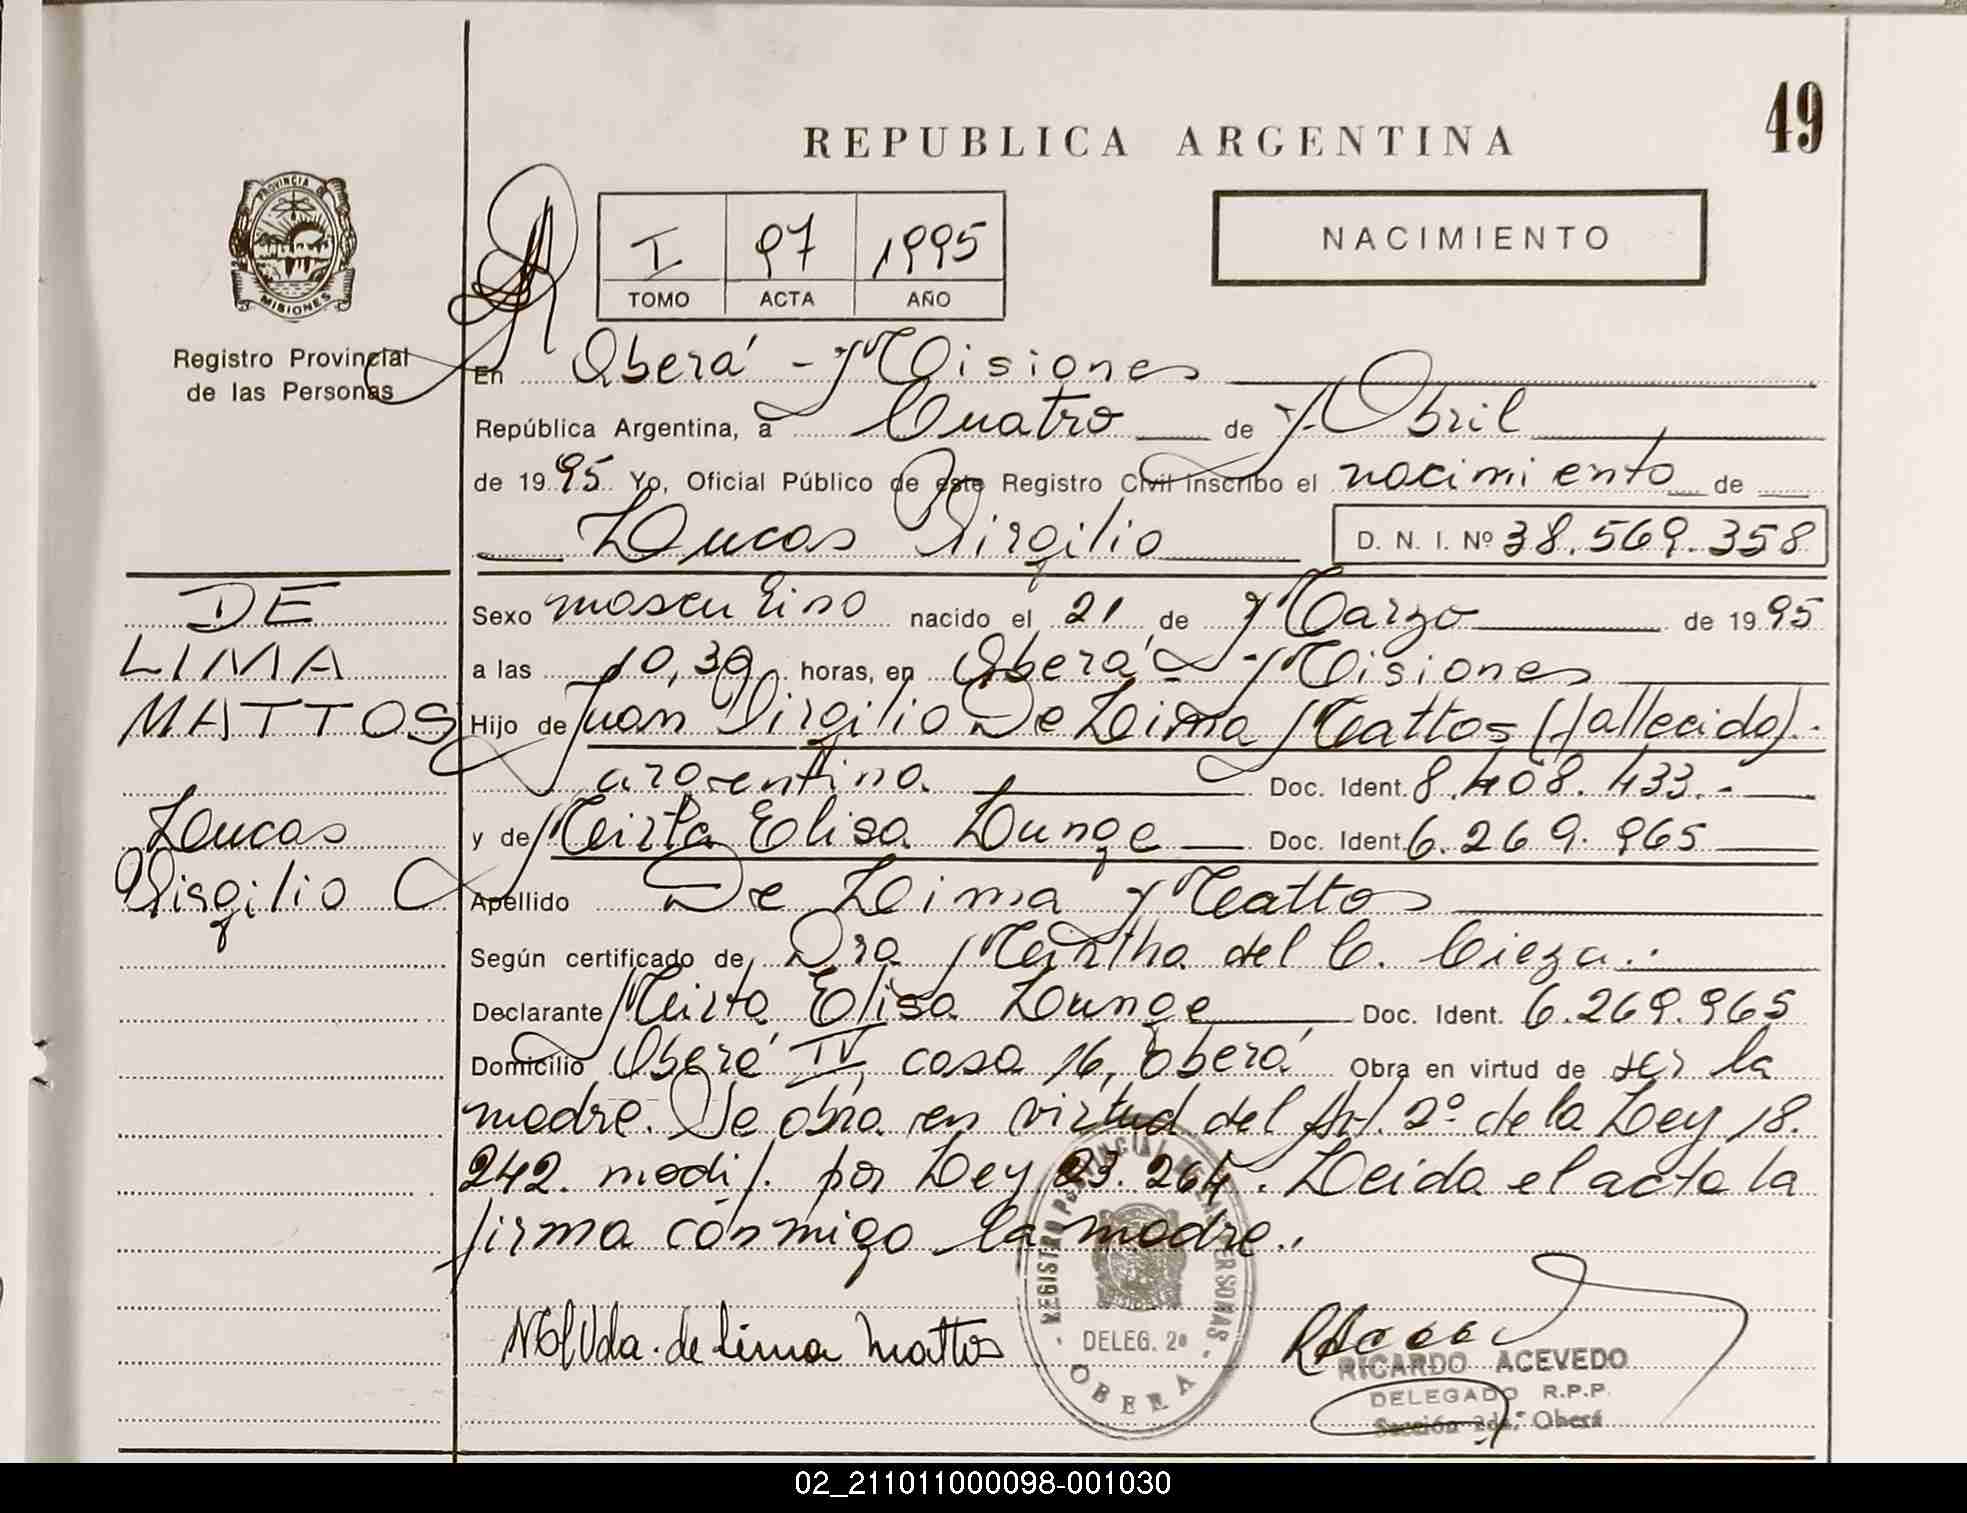 49
REPUBLICA ARGENTINA
PROVINCIA DE
MISIONES
Registro Provincial
de las Personas
I 97 1995
TOMO ACTA AÑO
NACIMIENTO
En Oberá - Misiones
República Argentina, a Cuatro de Abril
de 1995 Yo, Oficial Público de este Registro Civil inscribo el nacimiento de
Lucas Virgilio D. N. I. Nº 38.569.358
DE
LIMA
MATTOS
Lucas
Virgilio
Sexo masculino nacido el 21 de Marzo de 1995
a las 10,30 horas, en Oberá - Misiones
Hijo de Juan Virgilio De Lima Mattos (fallecido).-
argentino Doc. Ident. 8.408.433.-
y de Mirta Elisa Lunge Doc. Ident. 6.269.965
Apellido De Lima Mattos
Según certificado de Dra Martha del C. Cieza.-
Declarante Mirta Elisa Lunge Doc. Ident. 6.269.965
Domicilio Oberá IV, casa 16, Oberá Obra en virtud de ser la
madre. Se obra en virtud del Art. 2º de la Ley 18.
242. modif. por Ley 23.264. Leida el acta la
firma conmigo la madre.-
Vda. de Lima Mattos
REGISTRO PROVINCIAL DE LAS PERSONAS
DELEG. 2a
OBERA
RICARDO ACEVEDO
DELEGADO R.P.P.
Sección 2da. Oberá
02_211011000098-001030